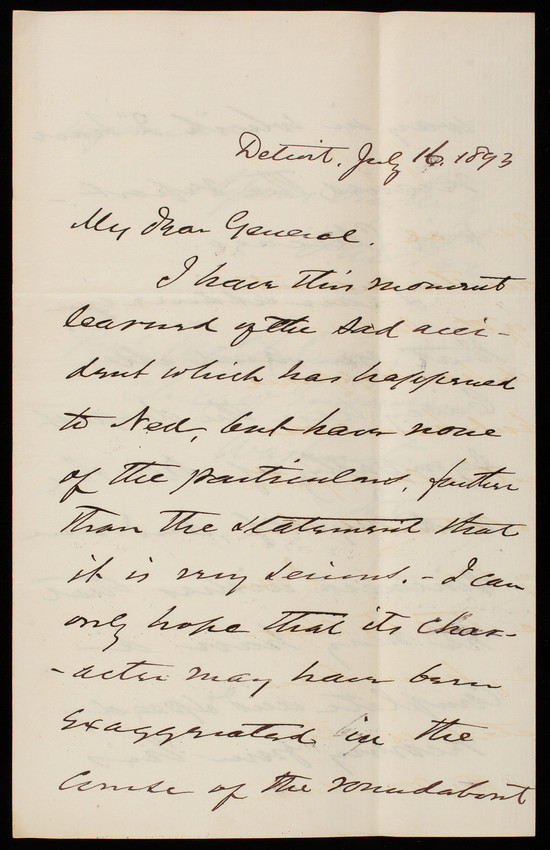 Detroit, July 16. 1893
My Dear General.
I have this moment
learned of the sad acci-
dent which has happened
to Ned, but have none
of the particulars, further
than the statement that
it is very serious. - I can
only hope that its char-
-acter may have been
exaggerated in the
course of the roundabout